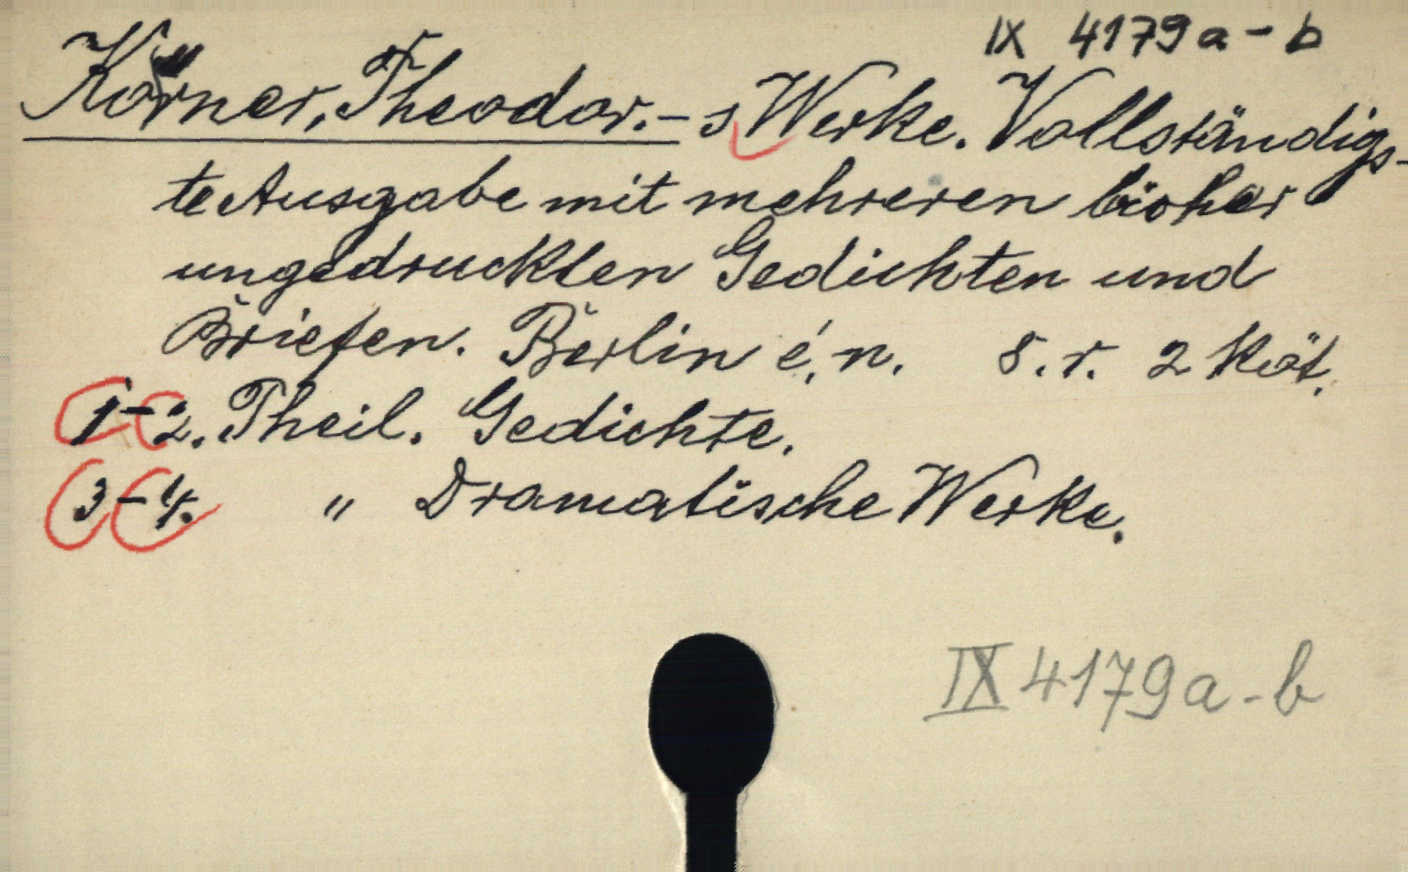 IX 4179 a-b
Körner, Theodor.- s Werke. Vollständigs-
te Ausgabe mit mehreren bisher
ungedruckten Gedichten und
Briefen. Berlin é. n. 8. r. 2 köt.
1-2. Theil. Gedichte.
3-4. " Dramatische Werke.
IX 4179 a-b